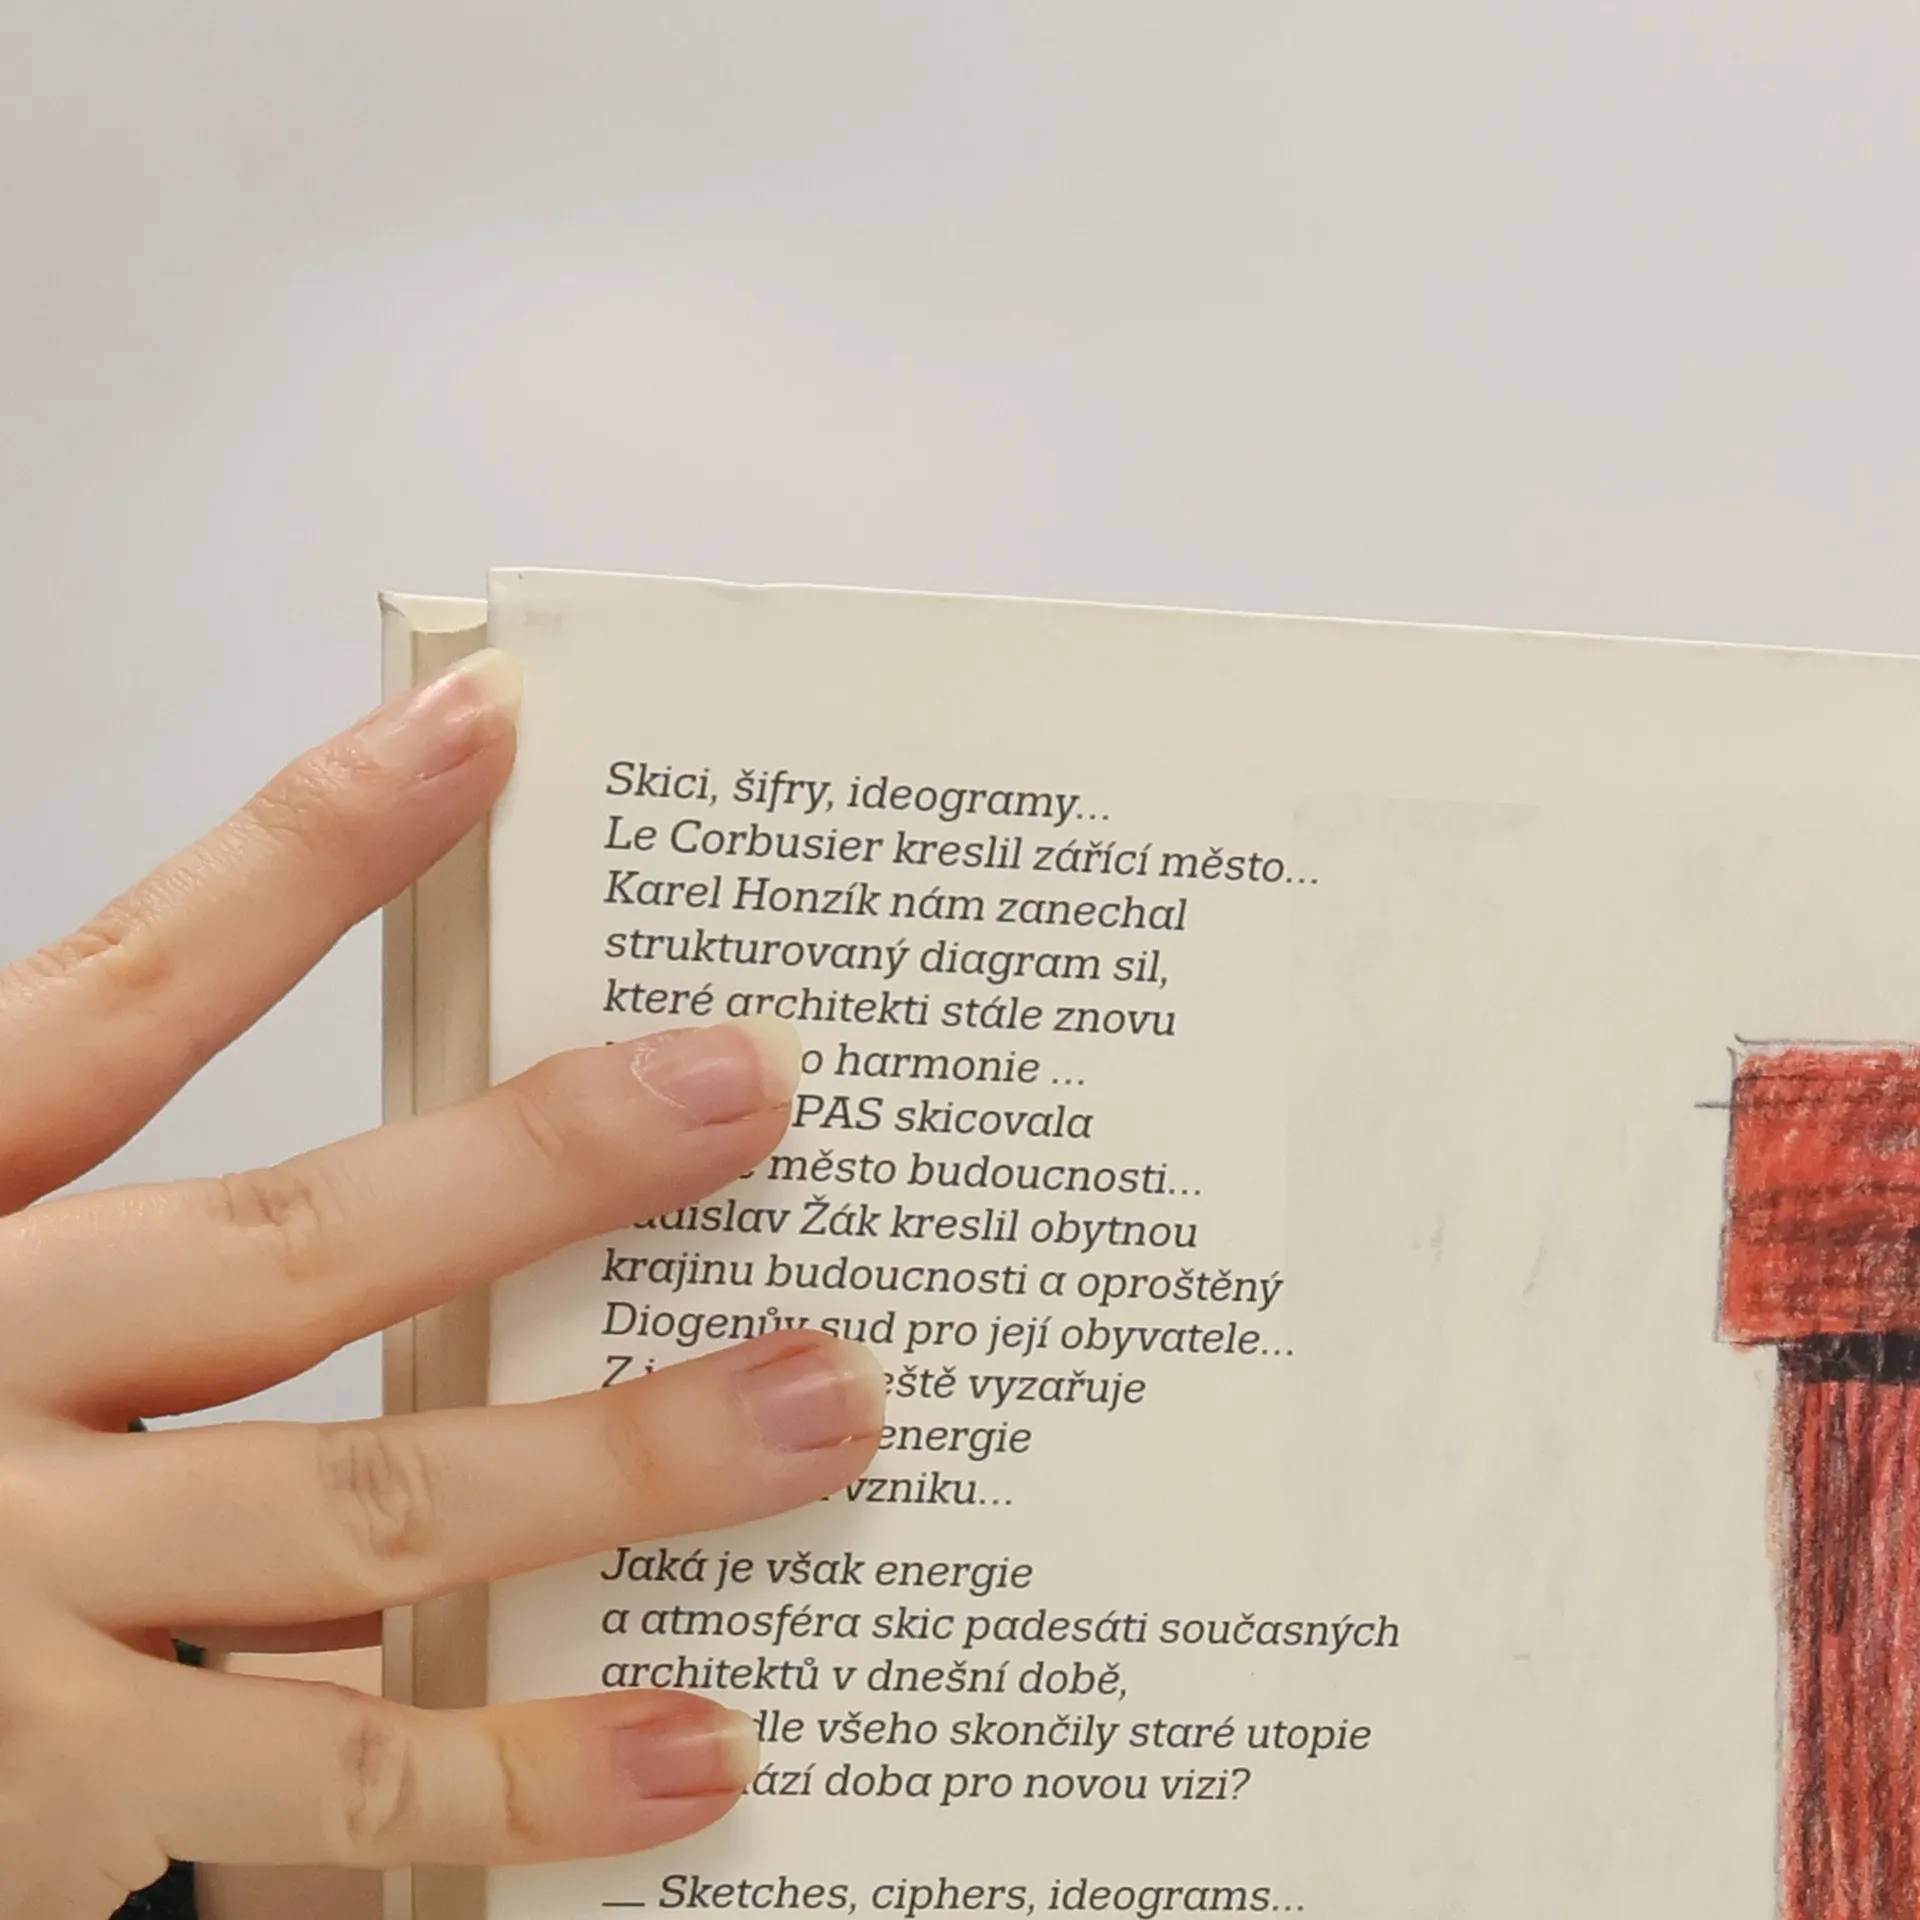 Skici, šifry, ideogramy...
Le Corbusier kreslil zářící město...
Karel Honzík nám zanechal
strukturovaný diagram sil,
které architekti stále znovu
harmonie ...
PAS skicovala
město budoucnosti...
Žák kreslil obytnou
krajinu budoucnosti a oproštěný
Diogenův sud pro její obyvatele...
vyzařuje
energie
vzniku...
Jaká je však energie
a atmosféra skic padesáti současných
architektů v dnešní době,
všeho skončily staré utopie
doba pro novou vizi?
— Sketches, ciphers, ideograms...